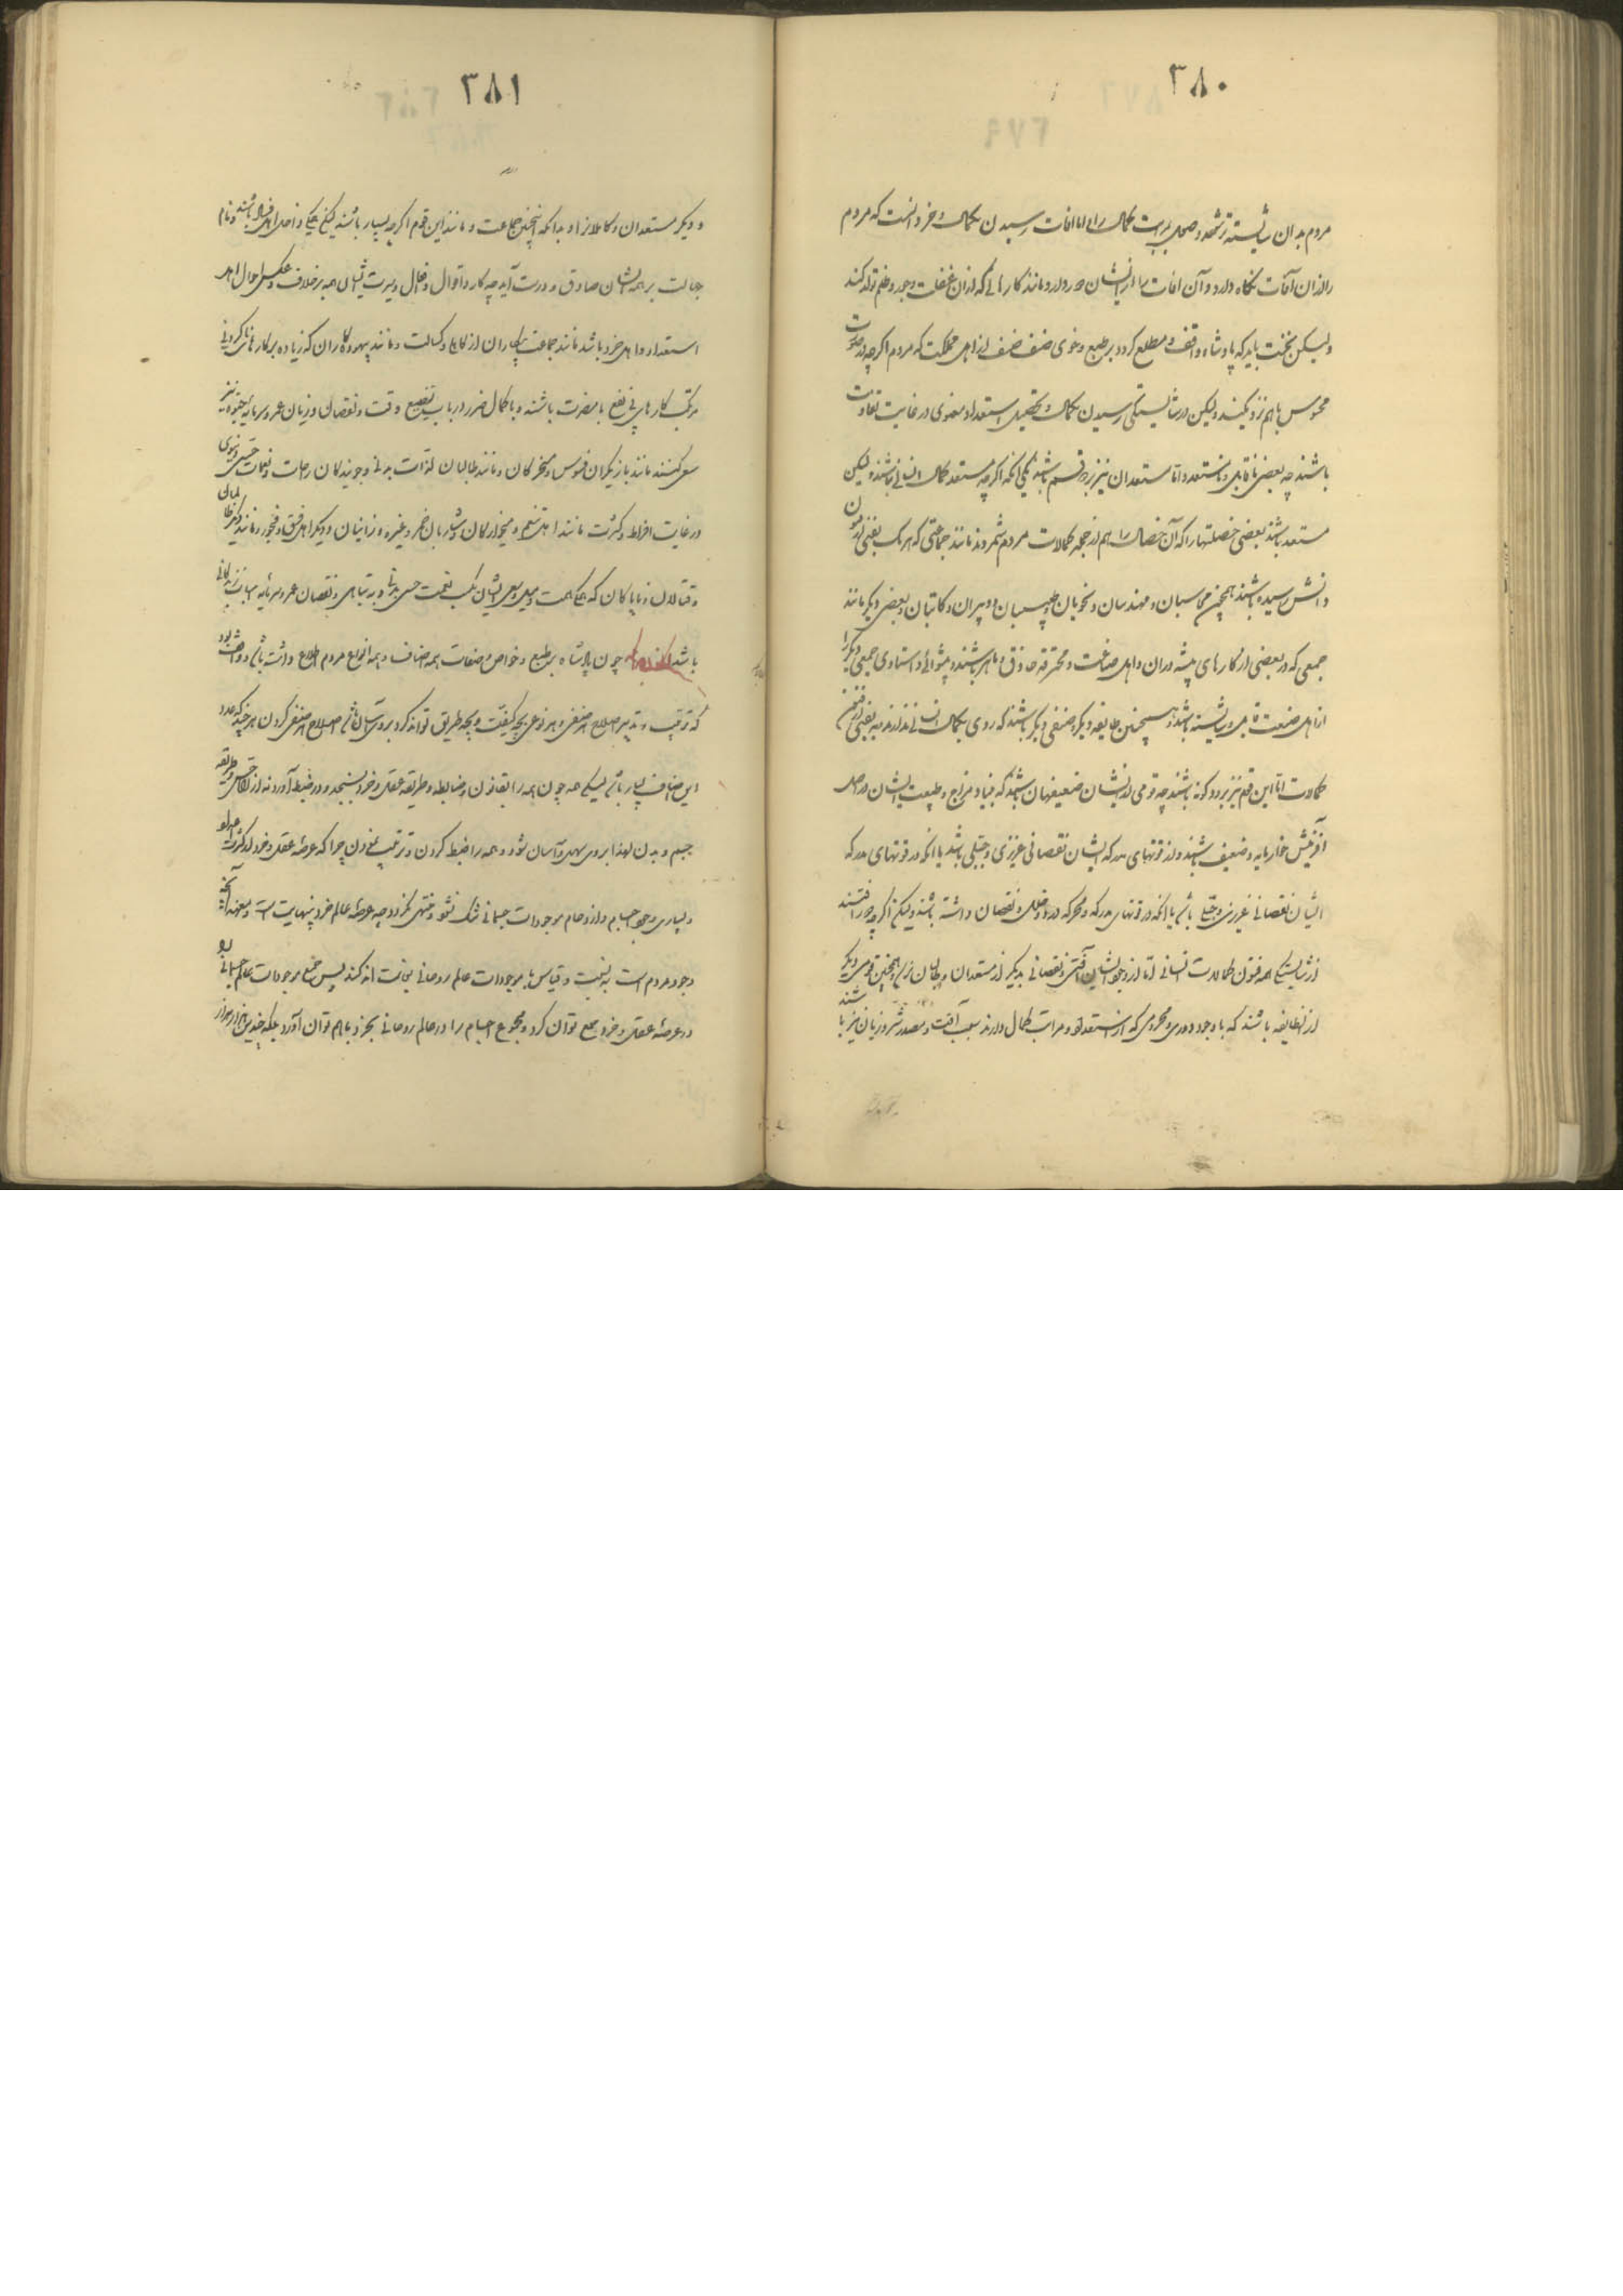 ۳۸۰
مردم بدان شایسته تر شود و صحل مراتب کمال را و اما افات رسیدن بکمال و خرد انست که مردم
را از ان آفات نگاه دارد و آن افات را از ایشان دور دارد مانند کارهائی که از ان غفلت و جور و ظلم تولد کند
ولیکن نخست باید که پادشاه واقف و مطلع گردد بر طبع و خوی صنف صنف از اهل مملکت که مردم اگرچه در صورت
محسوس باهم نزدیکند ولیکن در شایستگی رسیدن بکمال و تحصیل استعداد معنوی در غایت تفاوت
باشند چه بعضی ناقابل و نامستعد و اما مستعدان نیز بر دو قسم باشند یکی آنکه اگرچه مستعد کمال انسانی نباشند ولیکن
مستعد باشند بعضی خصلتها را که آن خصال را هم از جمله کمالات مردم شمروند مانند جماعتی که هر یک بفنی از فنون
دانش رسیده باشند همچون محاسبان و مهندسان و نحویان و طبیبان و دبیران و کاتبان و بعضی دیگر مانند
جمعی که در بعضی از کارهای پیشه وران و اهل صناعت و محترفه حاذق و ماهر باشند و پیشوائی و استادی جمعی دیگر را
از اهل صنعت قابل و شایسته باشند و همچنین طایفه دیگر و صنفی دیگر باشند که روی بکمال انسانی ندارند مه بفنی از فنون
کمالات اما این قوم نیز بر دو گونه باشند چه قومی از ایشان ضعیفان باشند که بنیاد مزاج و طبیعت ایشان در اصل
آفرینش خوار مایه و ضعیف باشند و از قوتهای مدرکه ایشان نقصانی غریزی و جبلی باشد یا انکه در قوتهای مدرکه
ایشان نقصانی غریزی و جبلی باشد یا انکه در قوتهای مدرکه و محرکه هر دو خلل و نقصان داشته باشند ولیکن اگرچه دور افتند
از شایستگی همه فنون کمالات انسانی اما از وجود ایشان آفتی و نقصانی بدیگر از مستعدان و طالبان نرسد و همچنین قومی دیگر
از انطایفه باشند که با وجود دوری و محرومی که از استعداد و مراتب کمال دارند سبب آفت و مصدر شر و زیان نیز باشند
۳۸۱
و دیگر مستعدان و کاملانرا و بدانکه اینچنین جماعت و مانند این قوم اگرچه بسیار باشند لیکن یکی داخل اهل فساد باشند و نام
جهالت بر همه ایشان صادق و درست آید چه کار و اقوال و افعال و سیرت ایشان همه بر خلاف و عکس حال اهل
استعداد و اهل خرد باشد مانند جماعت بیکاران از کاهلی و کسالت و مانند بیهوده کاران که زیاده بر کار ناکردنی
مرتکب کارهای بی نفع با مضرت باشند و با کمال ضرر در باب تضییع وقت و نقصان و زیان عمر و سرمایه خود نیز
سعی کنند مانند بازیگران فسوس و مسخرگان و مانند طالبان لذات بدنی و جویندگان راحات و نعمات حسی دنیوی
در غایت افراط و کثرت مانند اهل تنعم و میخوارگان و شاربان خمر و غیره و زانیان و دیگر اهل فسق و فجور و مانند دیگر ظالمان
و قتالان و ناپاکان که یکی همت و میل و سعی ایشان بکسب نعمت حسی بدنی و به تباهی و نقصان عمر و سرمایه اسباب زندگانی
باشد چون پادشاه بر طبع و خواص و صفات همه اصناف و همه انواع مردم اطلاع داشته باشد و واقف بود
که ترتیب و تدبیر اصلاح هر صنفی و هر نوعی بچه کیفیت و بچه طریق تواند کرد بر وی آسان باشد اصلاح هر صنفی کردن هر چند که عدد
این اصناف بسیار باشد لیکن همه چون همه را بقانون و ضابطه و طریقه عقل و خرد بسنجد و در ضبط آورد نه از لحاظ حس و طریقه
جسم و بدن لهذا بر وی سهل و آسان شود و همه را ضبط کردن و ترتیب نمودن چرا که عرصه عقل و خرد از کثرت اعداد
و بسیاری وجود اجسام و ازدحام موجودات جسمانی تنگ نشود و منتهی نگردد چه عرصه عالم خرد بینهایت است و معهذا آنچه
وجود مردم است به نسبت و قیاس با موجودات عالم روحانی بغایت اندکند پس جمیع موجودات عالم جسمانی را
در عرصه عقل و خرد جمع توان کرد و مجموع اجسام را در عالم روحانی بجزو باهم توان آورد بلکه چندین هزار هزار